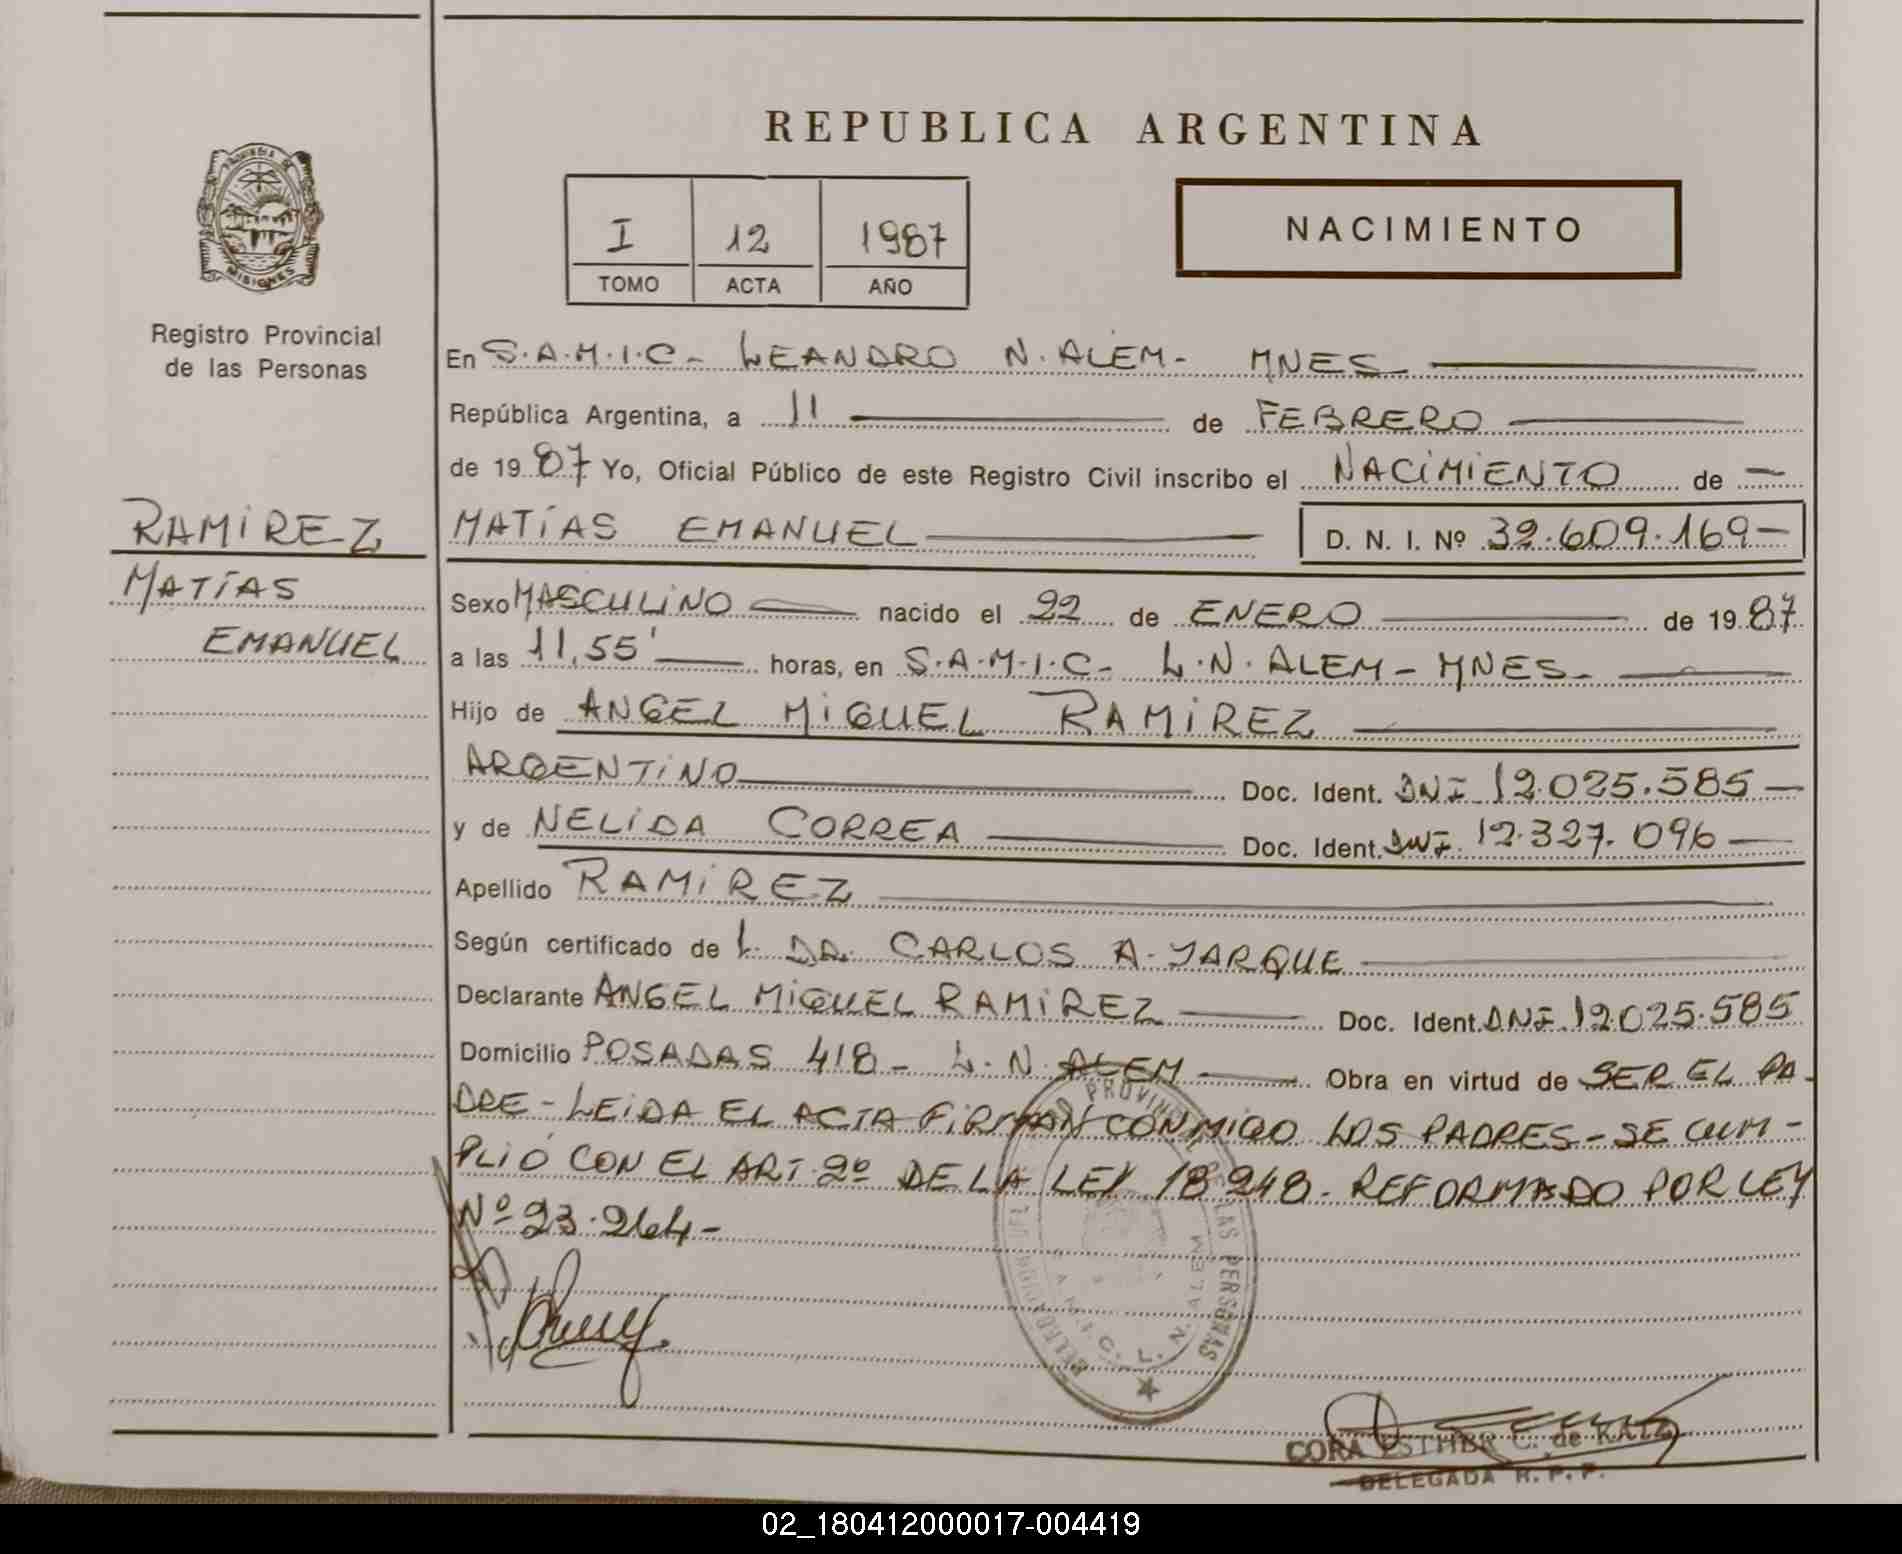 REPUBLICA ARGENTINA
PROVINCIA DE
MISIONES
Registro Provincial
de las Personas
I 12 1987
TOMO ACTA AÑO
NACIMIENTO
En S.A.M.I.C- LEANDRO N. ALEM- MNES
República Argentina, a 11 de FEBRERO
de 1987 Yo, Oficial Público de este Registro Civil inscribo el NACIMIENTO de
RAMIREZ
MATÍAS
EMANUEL
MATÍAS EMANUEL D. N. I. Nº 32.609.169-
Sexo MASCULINO nacido el 22 de ENERO de 1987
a las 11,55' horas, en S.A.M.I.C- L.N. ALEM - MNES-
Hijo de ANGEL MIGUEL RAMIREZ
ARGENTINO Doc. Ident. DNI 12.025.585-
y de NELIDA CORREA Doc. Ident. DNI 12.327.096-
Apellido RAMIREZ
Según certificado de L. DR. CARLOS A. JARQUE
Declarante ANGEL MIGUEL RAMIREZ Doc. Ident. DNI 12.025.585
Domicilio POSADAS 418- L.N. ALEM Obra en virtud de SER EL PA-
DRE-LEIDA EL ACTA FIRMAN CONMIGO LOS PADRES-SE CUM-
PLIÓ CON EL ART. 2º DE LA LEY 18248. REFORMADO POR LEY
Nº 23.264-
PROVINCIAL DE LAS PERSONAS
S.A.M.I.C. L.N. ALEM
CORA ESTHER C. de KATZ
DELEGADA R. P. P.
02_180412000017-004419